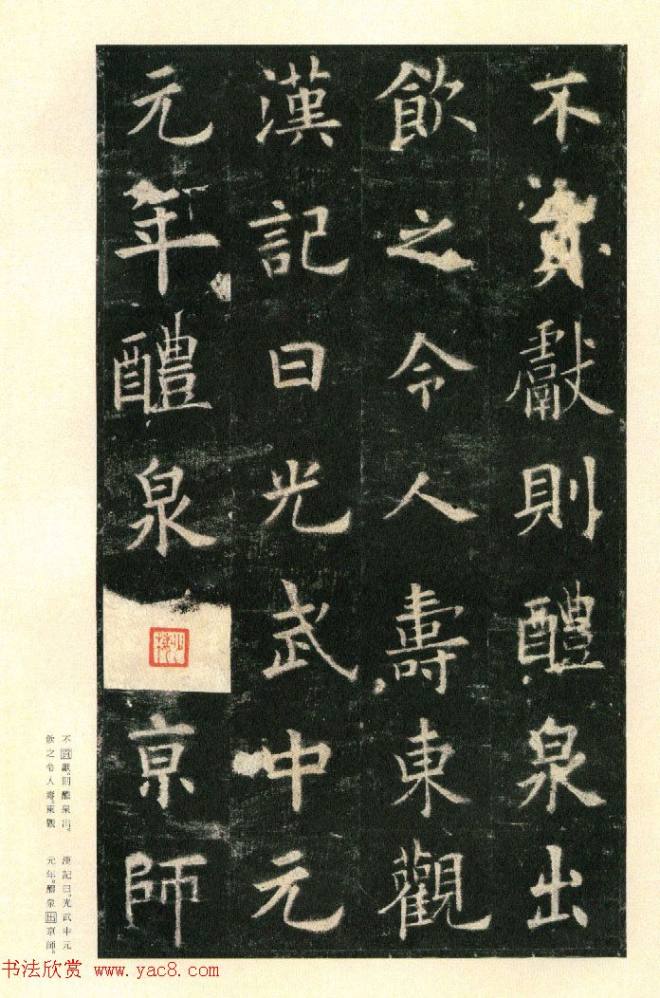 不貢獻則醴泉出
飲之令人壽東觀
漢記曰光武中元
元年醴泉京師
不貢獻。則醴泉出。
飲之令人壽。東觀
漢記曰。光武中元
元年。醴泉出京師。
书法欣赏 www.yac8.com